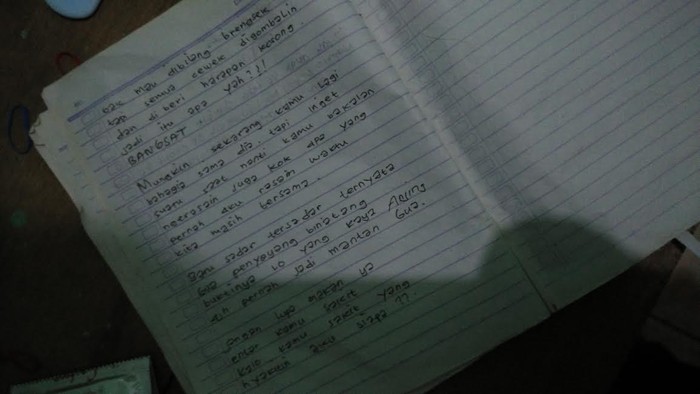 Gak mau dibilang brengsek
tap semua cewek digombalin
dan di beri harapan kosong.
jadi itu apa yah?!!
BANGSAT
Mungkin sekarang kamu lagi
bahagia sama dia. tapi inget
suatu saat nanti kamu bakalan
ngerasain juga kok apa yang
pernah aku rasain waktu
kita masih bersama.
Baru sadar tersadar ternyata
Gua penyayang binatang
buktinya lo yang kaya Anjing
dih pernah jadi mantan Gua.
Jangan lupa makan ya
entar kamu sakit
kalo kamu sakit yang
nyakitin aku siapa??.